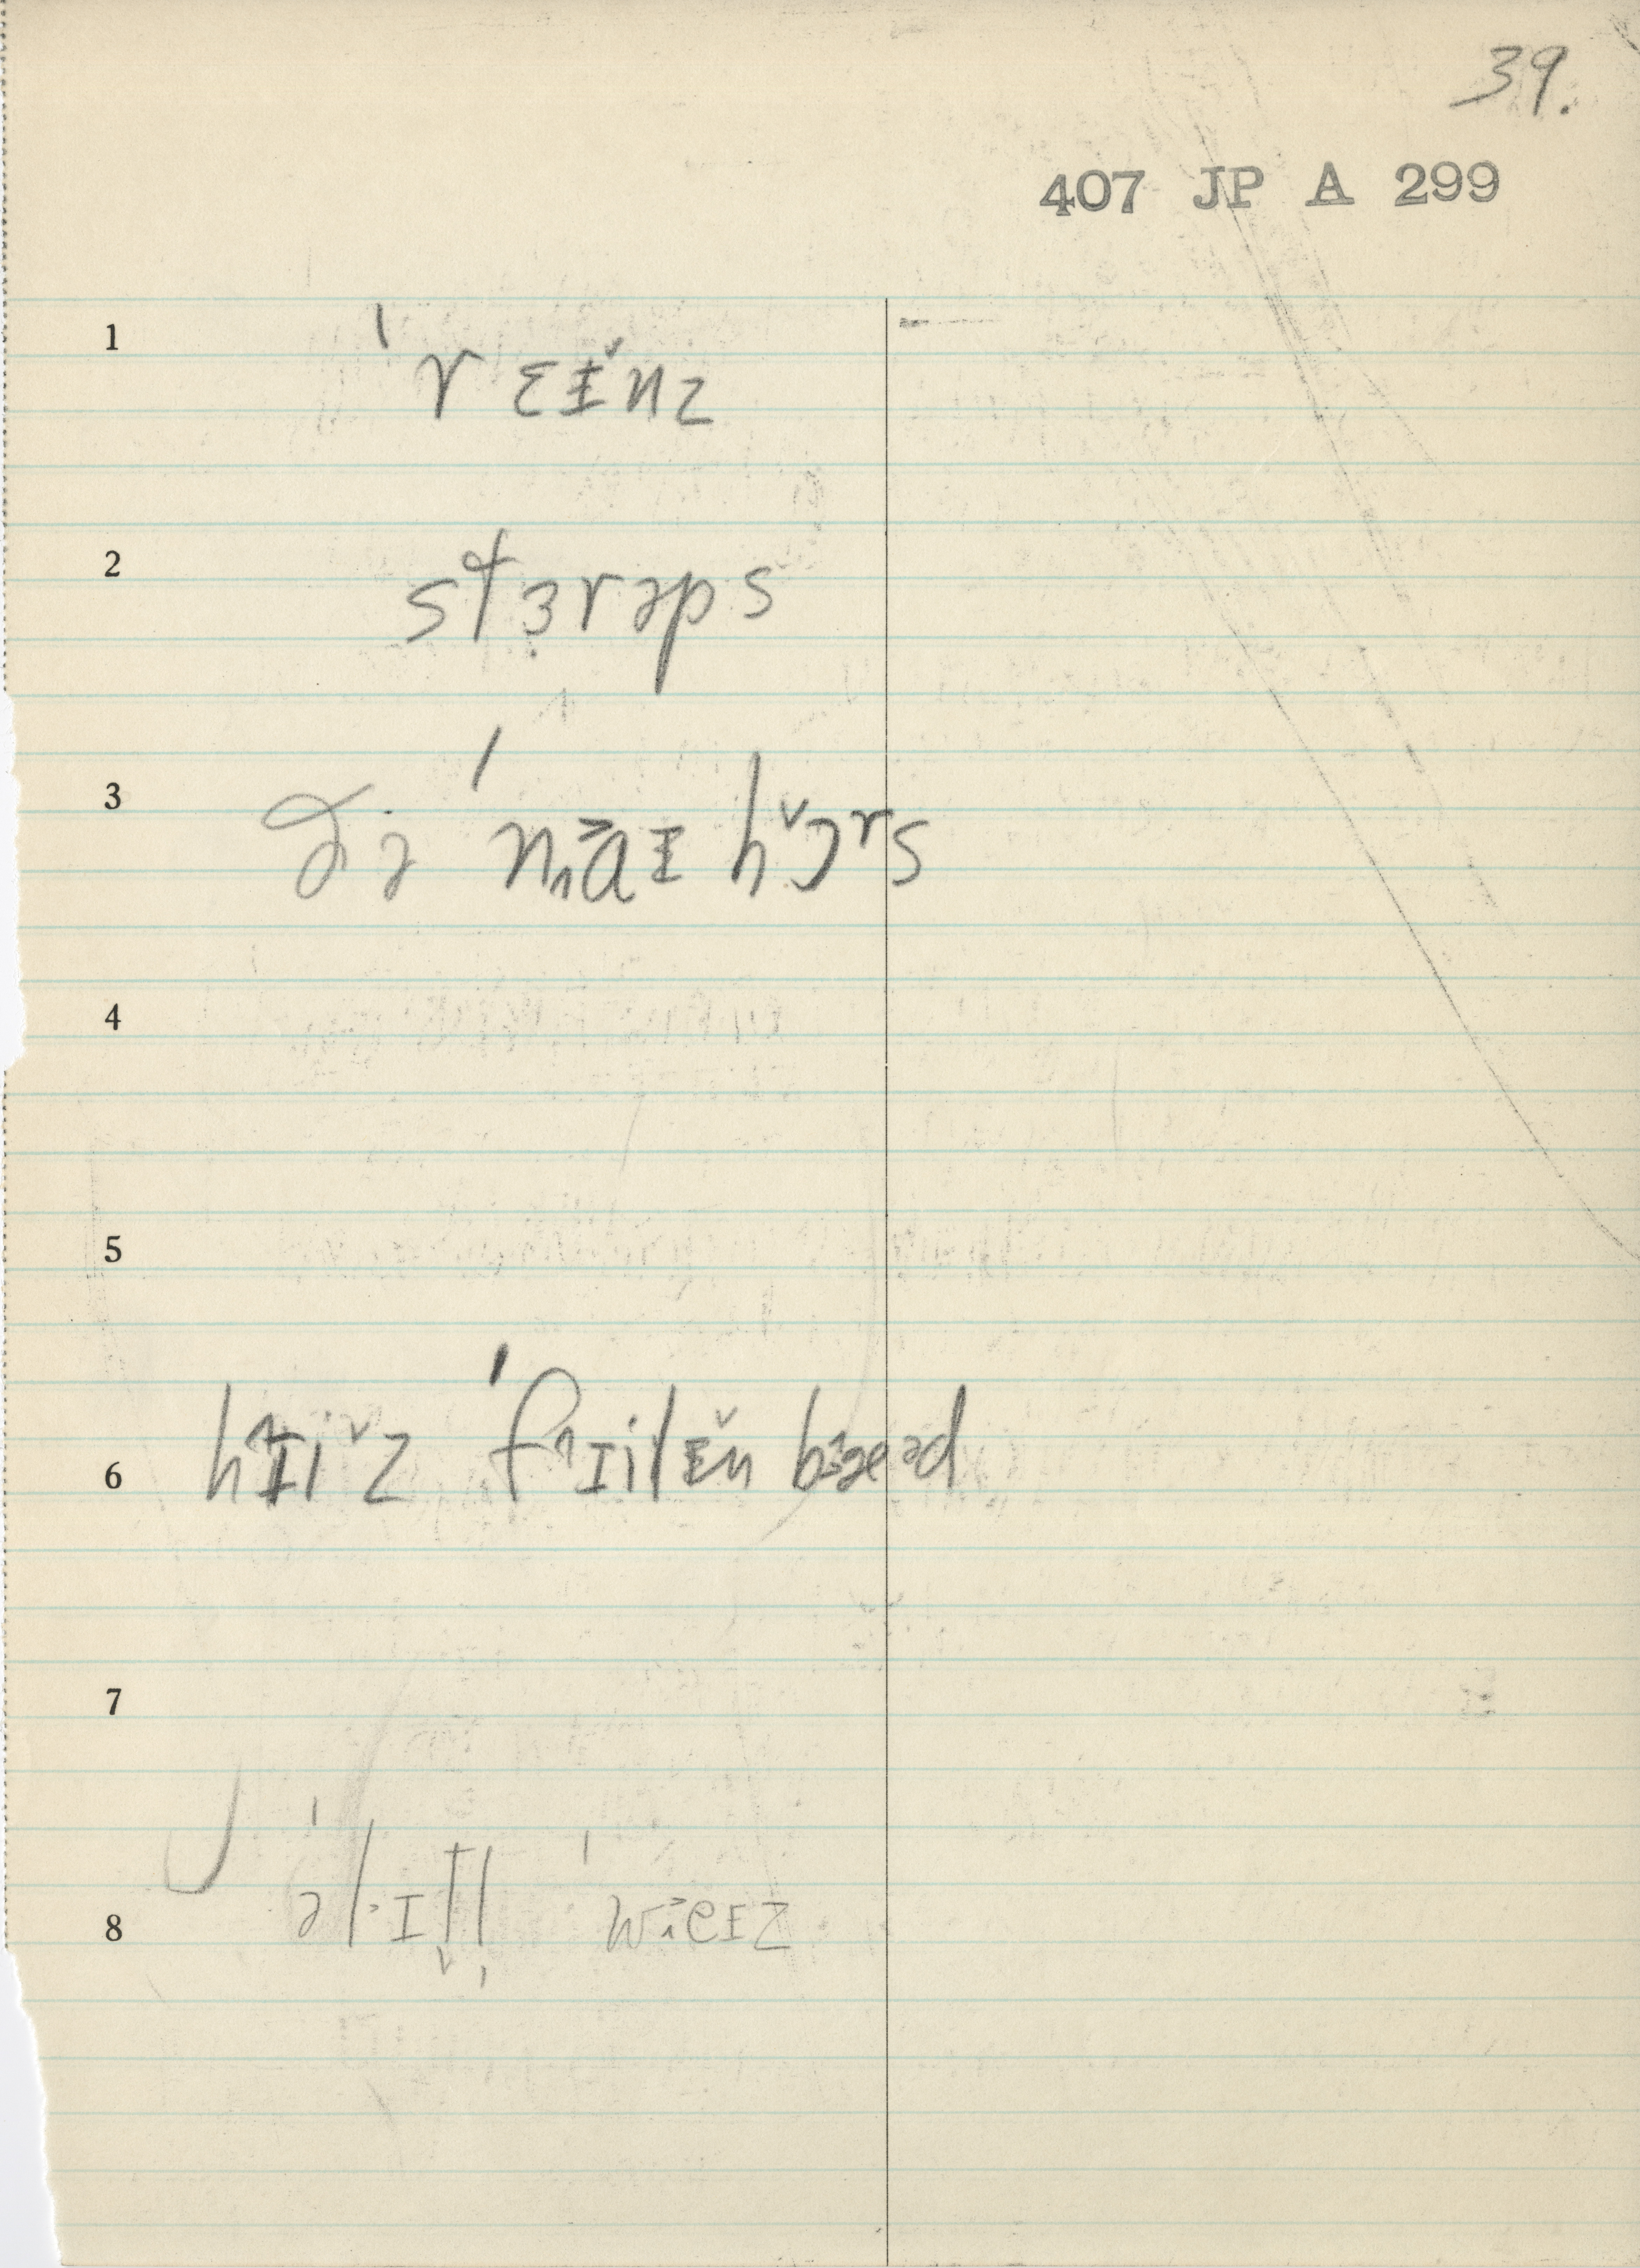 39.
407 JP A 299
1 ˈrɛɪ̌nz
2 stɜrəps
3 ðə ˈnaɪ hɔrs
4
5
6 hɪiz ˈfɪilɪn bæəd
7
8 ˈəlɪtl ˈweɪz